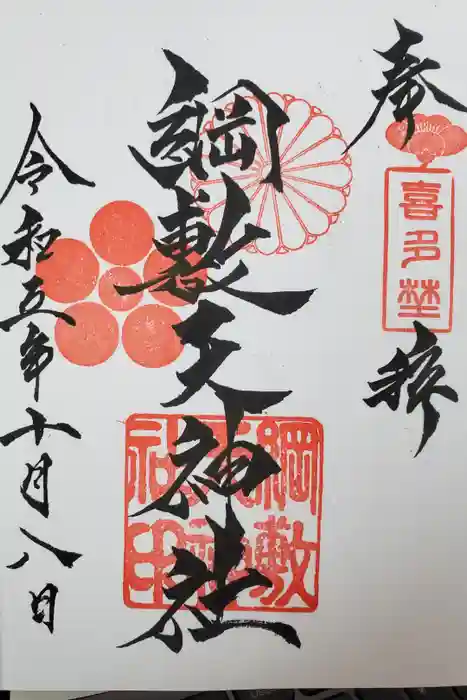 奉拝
喜多埜
綱敷天神社
綱敷天神社印
令和五年十月八日